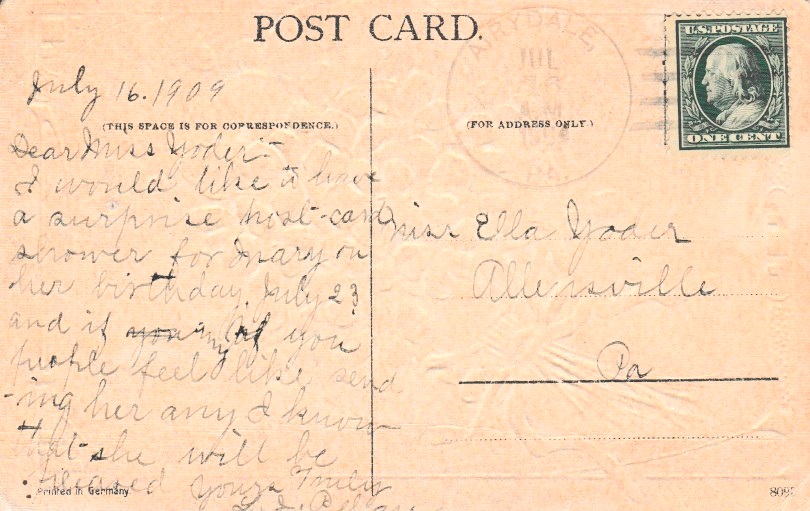 POST CARD.
AIRYDALE,
JUL
A.M.
PA.
U.S. POSTAGE
ONE CENT
July 16. 1909
(THIS SPACE IS FOR CORRESPONDENCE.)
(FOR ADDRESS ONLY.)
Dear Miss Yoder:-
I would like to have
a surprise post-card
shower for Mary on
her birthday. July 23
and if you any of you
people feel like send
-ing her any I know
that she will be
pleased Yours Truly
Miss Ella Yoder
Allensville
Pa
Printed in Germany